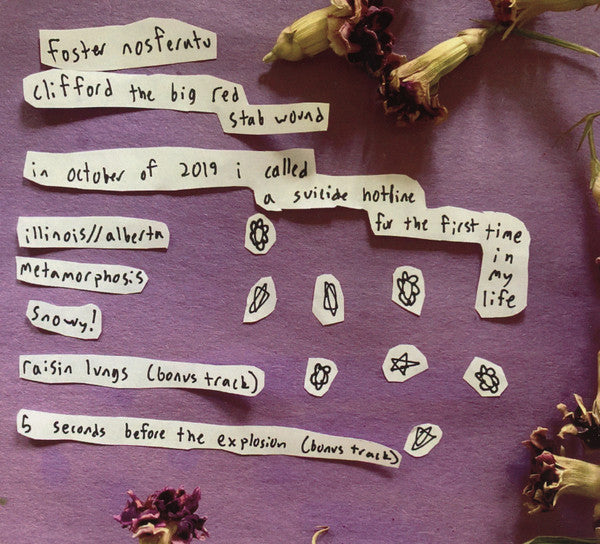 foster nosferatu
clifford the big red
stab wound
in october of 2019 i called
a suicide hotline
for the first time
in
my
life
illinois//alberta
metamorphosis
snowy!
raisin lungs (bonus track)
5 seconds before the explosion (bonus track)